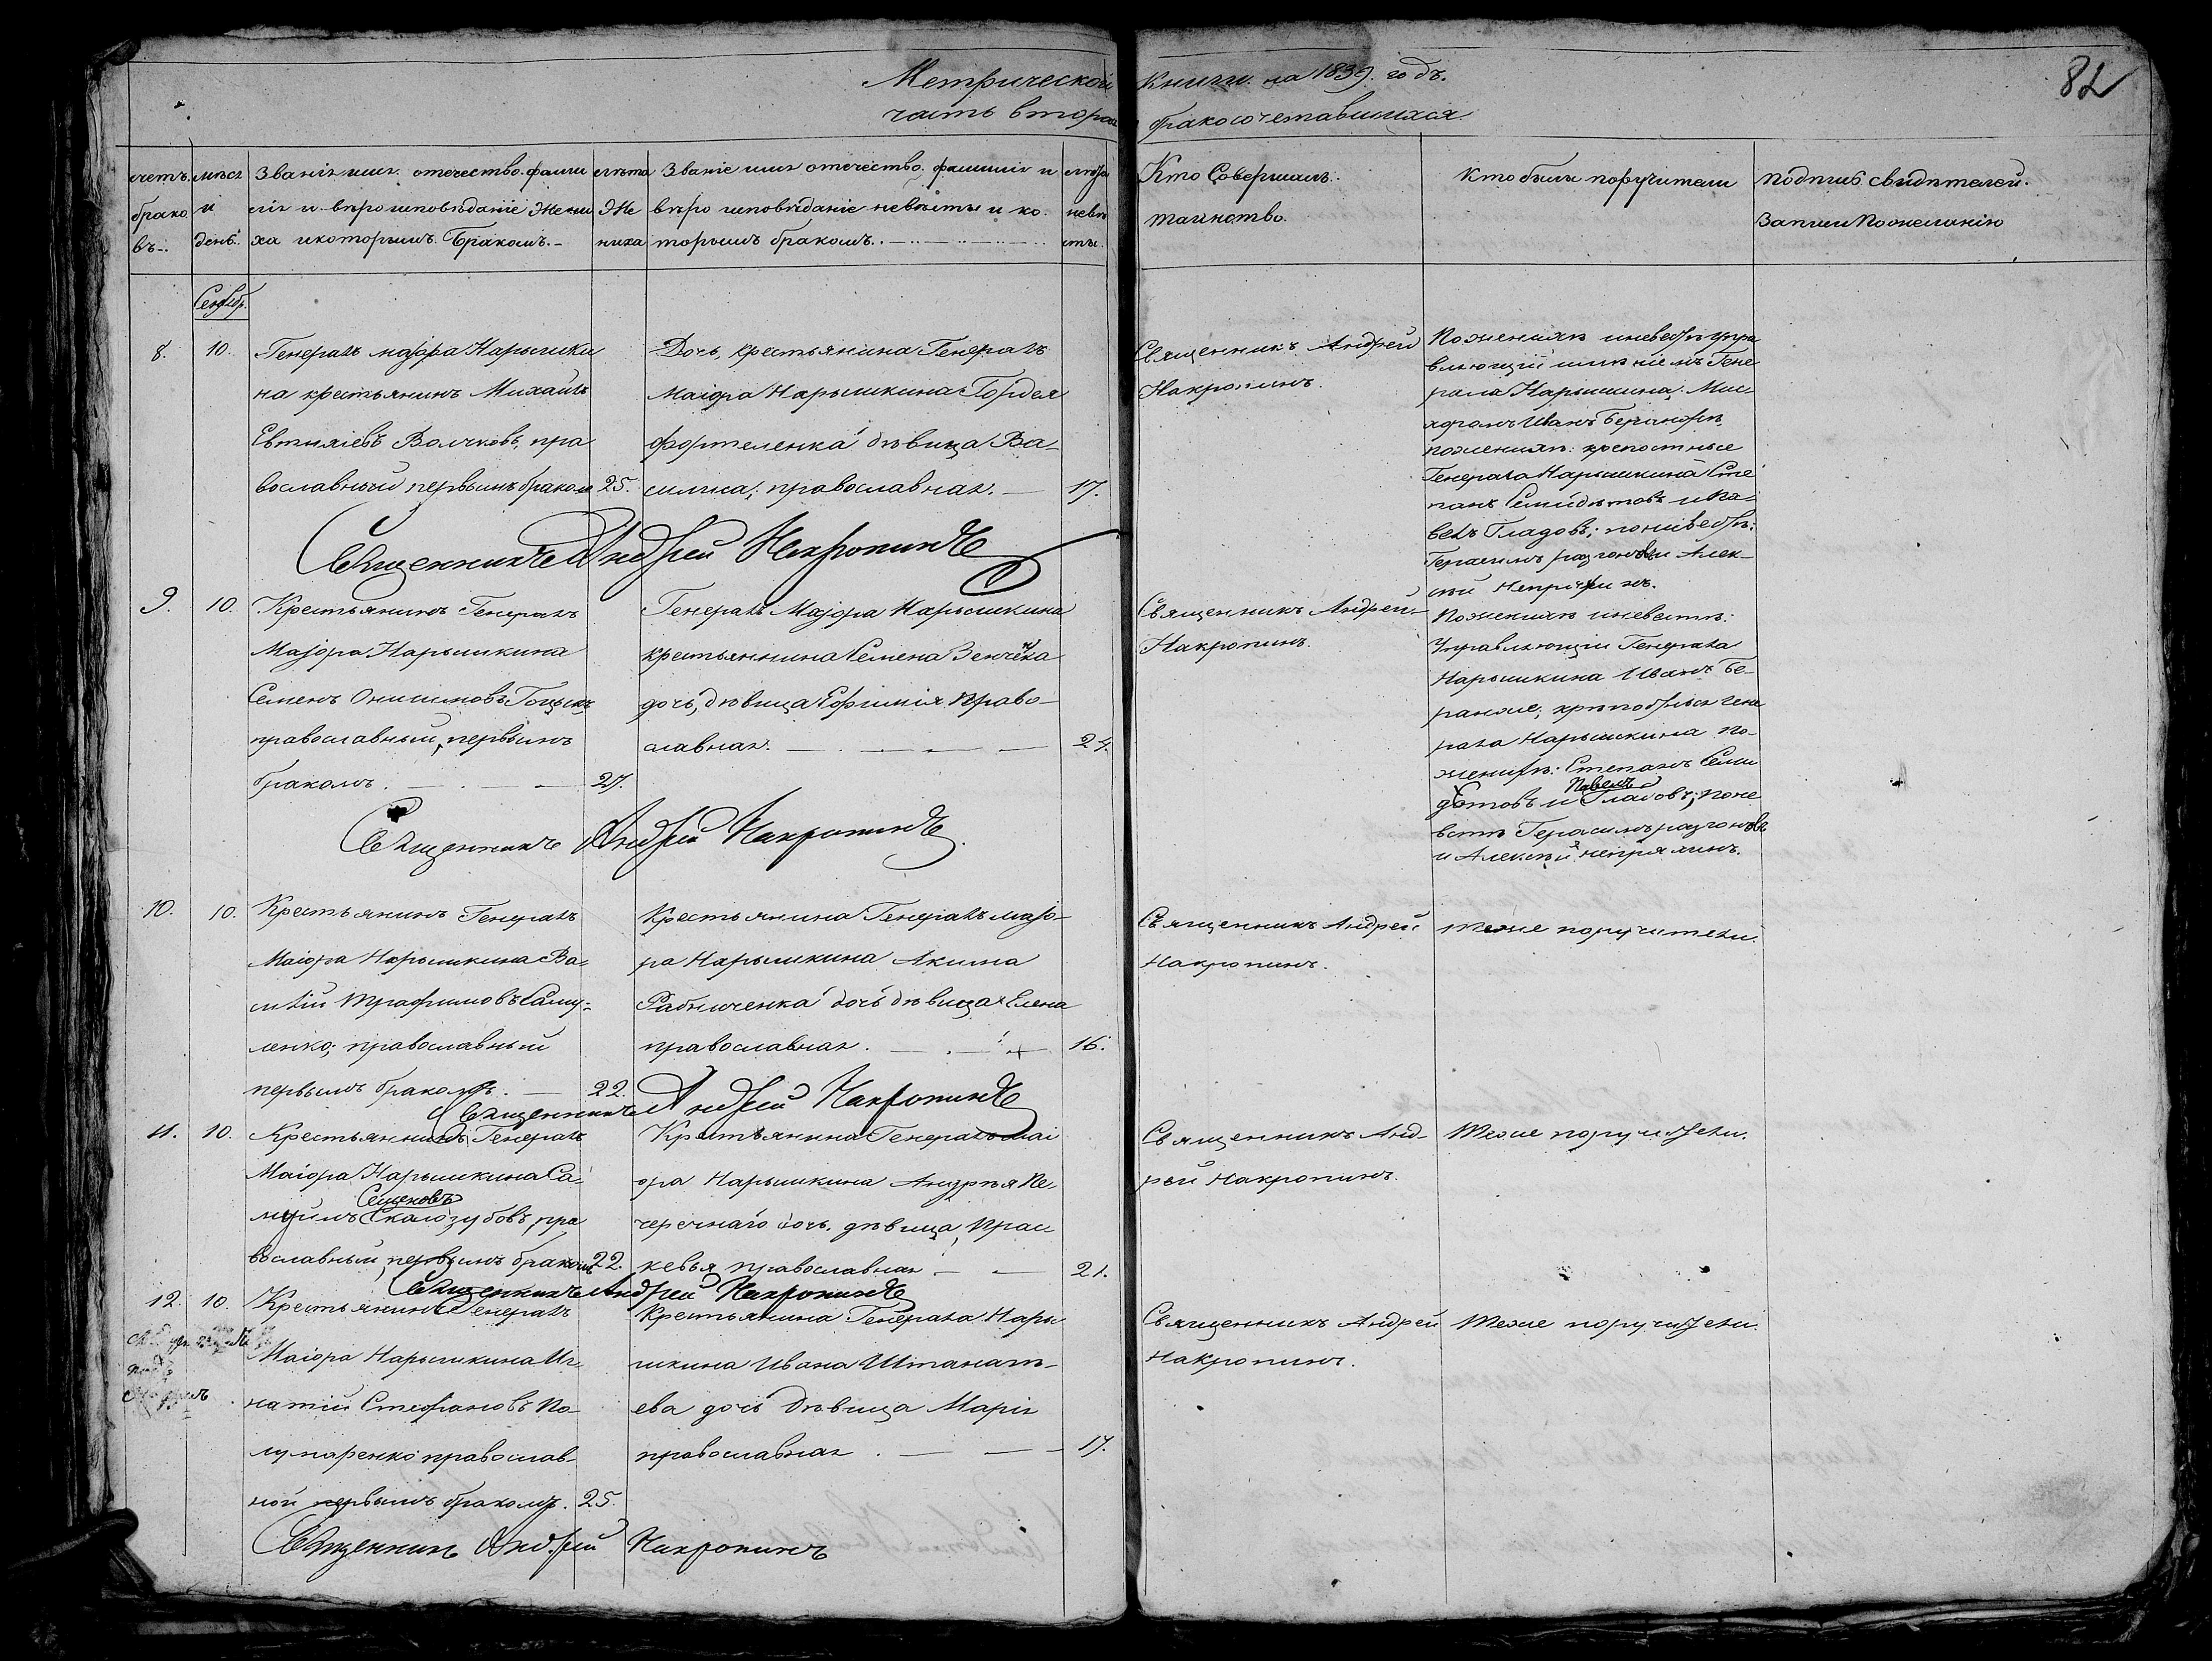 Метрической книги на 1839. годъ.
часть вторая бракосочетавшихся
82
счетъ браковъ.
мѣсяць и день.
Званіе имя отечество. фами
лія и вѣроисповѣданіе Жени
ха и которымъ Бракомъ.
лѣта Жениха
Званіе имя отечество фамилія и
вѣроисповѣданіе невѣсты и ко
торымъ бракомъ.
лѣта невѣсты.
Кто Совершалъ
таинство.
Кто были поручители
подпись свидѣтелей.
записи по желанію
Сентябр.
8. 10.
Генералъ маjора Нарышки
на крестьянинъ Михаилъ
Евтихіевъ Волчковъ, пра
вославный первымъ бракомъ 25.
Дочь крестьянина Генералъ
Маіора Нарышкина Гордея
Фортеленка дѣвица Ва-
силиса; православная. 17.
Священникъ Андрей
Накропинъ.
По женихѣ и невестѣ упра
вляющій имѣніемъ Гене
рала Нарышкина
Иванъ
по женихѣ: крепостные
Генерала Нарышкина Сте
панъ Семидѣтовъ и Па-
велъ Гладовъ; по невестѣ:
Герасимъ разгоновъ и Алек-
сѣй Непряхинъ.
Священникъ Андрей Накропинъ
9. 10.
Крестьянинъ Генералъ
Маjора Нарышкина
Семенъ Онисимовъ Гоцыкъ
православный, первымъ
бракомъ. 27.
Генералъ Маjора Нарышкина
крестьянина Семена Зенченка
дочь, дѣвица Ефимія право-
славная. 24.
Священникъ Андрей
Накропинъ.
По женихѣ и невестѣ:
Управляющій Генерала
Нарышкина Иванъ Бе-
ранже; крѣпостныя гене
рала Нарышкина по
женихѣ: Степанъ Семи
Павелъ
дѣтовъ и Гладовъ; по не
вестѣ Герасимъ разгоновъ
и Алексѣй непряхинъ.
Священникъ Андрей Накропинъ.
10. 10.
Крестьянинъ Генералъ
Маіора Нарышкина Ва-
силій Трофимовъ Саму-
ленко; православный
первымъ бракомъ. 22.
Крестьянина Генералъ маjо-
ра Нарышкина Акима
Рабиченка дочь дѣвица Елена
православная. 16.
Священникъ Андрей
Накропинъ.
теже поручители.
Священникъ Андрей Накропинъ
11. 10.
Крестьянинъ Генералъ
Маіора Нарышкина Са-
Сещеновъ
муилъ Скалозубовъ, пра
вославный, первымъ бракомъ 22.
Крестьянина Генералъ маі
ора Нарышкина Андрѣя Пе-
черечнаго дочь, дѣвица, Прас
кевья православная 21.
Священникъ Анд-
рей Накропинъ.
Теже поручители.
Священникъ Андрей Накропинъ
12. 10.
Крестьянинъ Генералъ
Маіора Нарышкина Иг-
натій Стефановъ По-
лупаренко православ-
ной первымъ бракомъ. 25.
Крестьянина Генерала Нары
шкина Ивана Штанать-
ева дочь дѣвица Марія
православная 17.
Священникъ Андрей
Накропинъ.
Теже поручители.
Священникъ Андрей Накропинъ